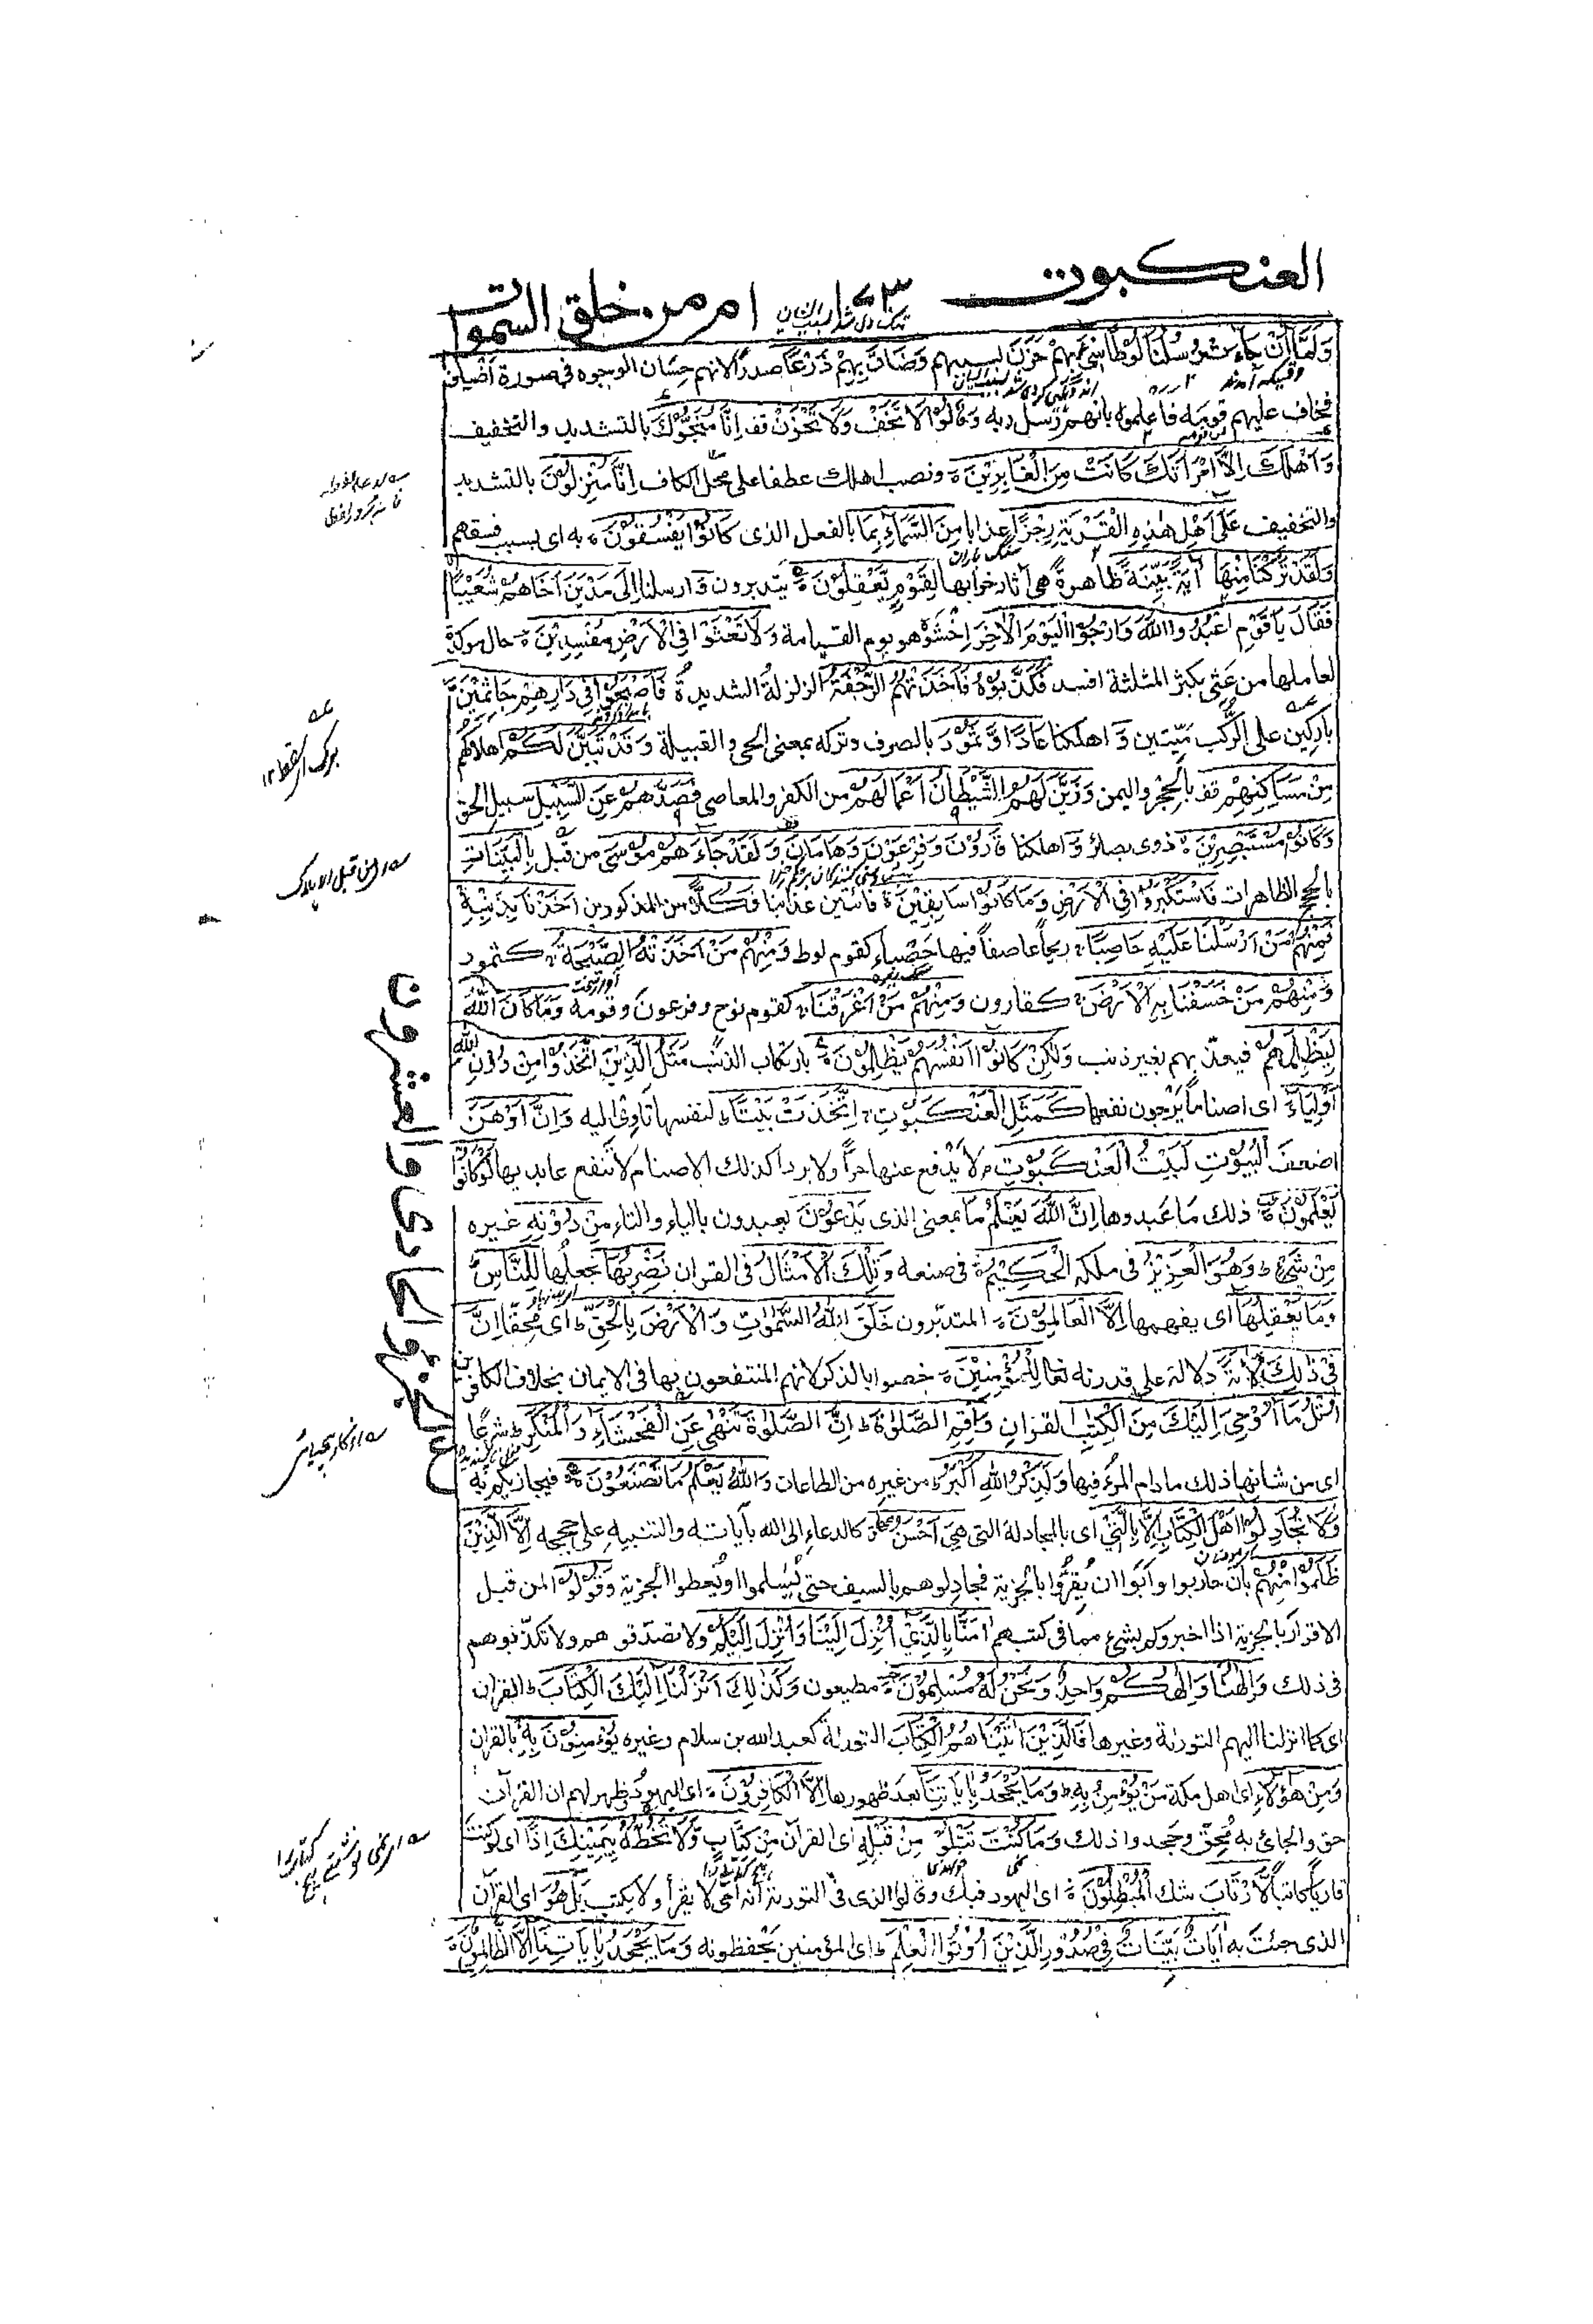 العنكبوت
ام من خلق السموات
وَلَمَّا أَنْ جَاءَتْ رُسُلُنَا لُوْطًا سِيْءَ بِهِمْ حَزِنَ بسببهم وَضَاقَ بِهِمْ ذَرْعًا صدرا لانهم حِسَان الوجوه فى صورة اَضْياف
فخاف عليهم قومه فاعلموه بانهم رسل ربه وَقَالُوْا لَا تَخَفْ وَلَا تَحْزَنْ قف اِنَّا مُنَجُّوْكَ بالتشديد والتخفيف
وَاَهْلَكَ اِلَّا امْرَاَتَكَ كَانَتْ مِنَ الْغَابِرِيْنَ ونصب اهلك عطفا على محل الكاف اِنَّا مُنْزِلُوْنَ بالتشديد
والتخفيف عَلٰى اَهْلِ هٰذِهِ الْقَرْيَةِ رِجْزًا عذابا مِنَ السَّمَاءِ بِمَا بالفعل الذى كَانُوْا يَفْسُقُوْنَ به اى بسبب فسقهم
وَلَقَدْ تَرَكْنَا مِنْهَا اٰيَةً بَيِّنَةً ظاهرة هى آثار خرابها لِقَوْمٍ يَّعْقِلُوْنَ يتدبرون وَ ارسلنا اِلٰى مَدْيَنَ اَخَاهُمْ شُعَيْبًا
فَقَالَ يَا قَوْمِ اعْبُدُوا اللّٰهَ وَارْجُوا الْيَوْمَ الْاٰخِرَ اِخْشَوْه هو يوم القيامة وَلَا تَعْثَوْا فِى الْاَرْضِ مُفْسِدِيْنَ حال موكدة
لعاملها من عَثِى بكثر المثلثة افسد فَكَذَّبُوْهُ فَاَخَذَتْهُمُ الرَّجْفَةُ الزلزلة الشديدة فَاَصْبَحُوْا فِى دَارِهِمْ جَاثِمِيْنَ
باركين على الرُّكَب مَيّتين وَ اهلكنا عَادًا وَّ ثَمُوْدَ بالصرف وتركه بمعنى الحى والقبيلة وَقَدْ تَبَيَّنَ لَكُمْ اهلاكهم
مِنْ مَسَاكِنِهِمْ قف بالحجر واليمن وَزَيَّنَ لَهُمُ الشَّيْطَانُ اَعْمَالَهُمْ من الكفر والمعاصى فَصَدَّهُمْ عَنِ السَّبِيْلِ سبيل الحق
وَكَانُوْا مُسْتَبْصِرِيْنَ ذوى بصائر وَ اهلكنا قَارُوْنَ وَفِرْعَوْنَ وَهَامَانَ وَلَقَدْ جَاءَهُمْ مُوْسٰى من قبل بِالْبَيِّنَاتِ
بالحجج الظاهرات فَاسْتَكْبَرُوْا فِى الْاَرْضِ وَمَا كَانُوْا سَابِقِيْنَ فائتين عذابنا فَكُلًّا من المذكورين اَخَذْنَا بِذَنْبِهٖ
فَمِنْهُمْ مَنْ اَرْسَلْنَا عَلَيْهِ حَاصِبًا ريحًا عاصفًا فيها حَصْباء كقوم لوط وَمِنْهُمْ مَنْ اَخَذَتْهُ الصَّيْحَةُ كثمود
وَمِنْهُمْ مَنْ خَسَفْنَا بِهِ الْاَرْضَ كقارون وَمِنْهُمْ مَنْ اَغْرَقْنَا كقوم نوح وفرعون وقومه وَمَا كَانَ اللّٰهُ
لِيَظْلِمَهُمْ فيعذّبهم بغير ذنب وَلٰكِنْ كَانُوْا اَنْفُسَهُمْ يَظْلِمُوْنَ بارتكاب الذنب مَثَلُ الَّذِيْنَ اتَّخَذُوْا مِنْ دُوْنِ اللّٰهِ
اَوْلِيَاءَ اى اصناما يَرْجون نفعها كَمَثَلِ الْعَنْكَبُوْتِ اِتَّخَذَتْ بَيْتًا لنفسها تَأوِىْ اليه وَاِنَّ اَوْهَنَ
اضعفَ الْبُيُوْتِ لَبَيْتُ الْعَنْكَبُوْتِ لا يَدْفع عنها حرًّا ولا بردا كذلك الاصنام لا تنفع عابديها لَوْ كَانُوْا
يَعْلَمُوْنَ ذلك ما عبدوها اِنَّ اللّٰهَ يَعْلَمُ مَا بمعنى الذى يَدْعُوْنَ يعبدون بالياء والتاء مِنْ دُوْنِهٖ غيره
مِنْ شَيْءٍ وَهُوَ الْعَزِيْزُ فى ملكه الْحَكِيْمُ فى صنعه وَتِلْكَ الْاَمْثَالُ فى القران نَضْرِبُهَا نجعلها لِلنَّاسِ
وَمَا يَعْقِلُهَا اى يفهمها اِلَّا الْعَالِمُوْنَ المتدبّرون خَلَقَ اللّٰهُ السَّمٰوٰتِ وَالْاَرْضَ بِالْحَقِّ اى مُحِقًّا اِنَّ
فِىْ ذٰلِكَ لَاٰيَةً دلالة على قدرته تعالى لِلْمُؤْمِنِيْنَ خصوا بالذكر لانهم المنتفعون بها فى الايمان بخلاف الكافرين
اُتْلُ مَا اُوْحِىَ اِلَيْكَ مِنَ الْكِتٰبِ القران وَاَقِمِ الصَّلٰوةَ اِنَّ الصَّلٰوةَ تَنْهٰى عَنِ الْفَحْشَاءِ وَالْمُنْكَرِ شرعًا
اى من شانها ذلك ما دام المرء فيها وَلَذِكْرُ اللّٰهِ اَكْبَرُ من غيره من الطاعات وَاللّٰهُ يَعْلَمُ مَا تَصْنَعُوْنَ فيجازيكم به
وَلَا تُجَادِلُوْا اَهْلَ الْكِتَابِ اِلَّا بِالَّتِىْ اى بالمجادلة التى هِىَ اَحْسَنُ كالدعاء الى الله بآياته والتنبيه على حججه اِلَّا الَّذِيْنَ
ظَلَمُوْا مِنْهُمْ بان حاربوا وابَوْا ان يُقِرُّوا بالجزية فجادِلوهم بالسيف حتى يُسْلموا او يُعطوا الجزية وَقُوْلُوْا لمن قبل
الاقرار بالجزية اذا اخبروكم بشىء مما فى كتبهم اٰمَنَّا بِالَّذِىْ اُنْزِلَ اِلَيْنَا وَاُنْزِلَ اِلَيْكُمْ ولا تصدّقوهم ولا تكذّبوهم
فى ذلك وَاِلٰهُنَا وَاِلٰهُكُمْ وَاحِدٌ وَنَحْنُ لَهٗ مُسْلِمُوْنَ مطيعون وَكَذٰلِكَ اَنْزَلْنَا اِلَيْكَ الْكِتَابَ القران
اى كما انزلنا اليهم التورىة وغيرها فَالَّذِيْنَ اٰتَيْنَاهُمُ الْكِتَابَ التورىة كعبد الله بن سلام وغيره يُؤْمِنُوْنَ بِهٖ بالقران
وَمِنْ هٰؤُلَاءِ اى اهل مكة مَنْ يُؤْمِنُ بِهٖ وَمَا يَجْحَدُ بِاٰيَاتِنَا بعد ظهورها اِلَّا الْكَافِرُوْنَ اى اليهود وظهر لهم ان القرآن
حق والجائى به مُحِقّ وجحدوا ذلك وَمَا كُنْتَ تَتْلُوْ مِنْ قَبْلِهٖ اى القرآن مِنْ كِتَابٍ وَّلَا تَخُطُّهٗ بِيَمِيْنِكَ اِذًا اى لو كنت
قارِيًا كاتبا لَّارْتَابَ شك الْمُبْطِلُوْنَ اى اليهود فيك وقالوا الذى فى التورية انه اُمّى لا يقرأ ولا يكتب بَلْ هُوَ اى القرآن
الذى جئت به اٰيَاتٌ بَيِّنَاتٌ فِىْ صُدُوْرِ الَّذِيْنَ اُوْتُوا الْعِلْمَ اى المؤمنين يحفظونه وَمَا يَجْحَدُ بِاٰيَاتِنَا اِلَّا الظَّالِمُوْنَ
الجزؤ الحادى والعشرون